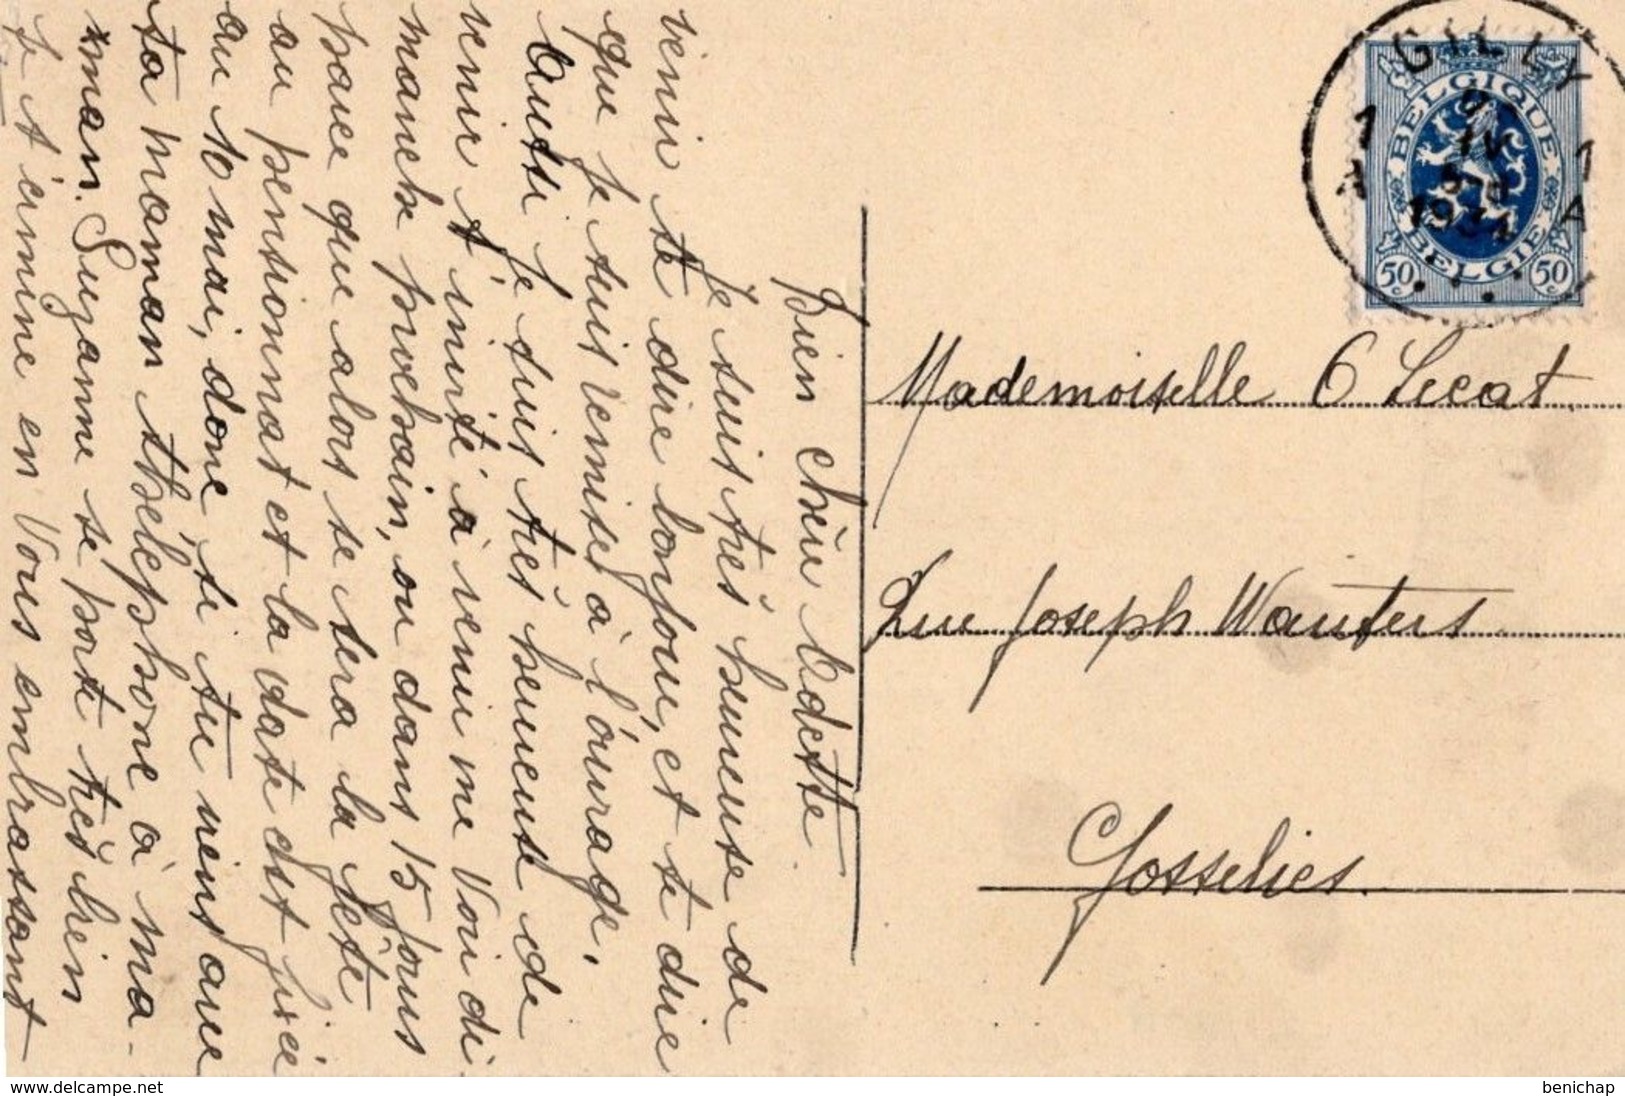 Bien chère Odette.
Je suis très heureuse de
venir te dire bonjour, et te dire
que je suis remises à l'ouvrage,
Aussi je suis très heureuse de
venir t'invité à venir me voir di
manche prochain, ou dans 15 jours
parce que alors se sera la fête
au pensionnat et la date est fixée
au 10 mai, donc, si tu viens avec
ta maman thélephone à ma-
man. Suzanne se porte très bien
Je termine en Vous embrassant
GILLY
1 A
1 A
IV
1931
BELGIQUE
BELGIE
50c
50c
Mademoiselle O Lecat.
Rue Joseph Wauters
Gosselies.
www.delcampe.net
benichap